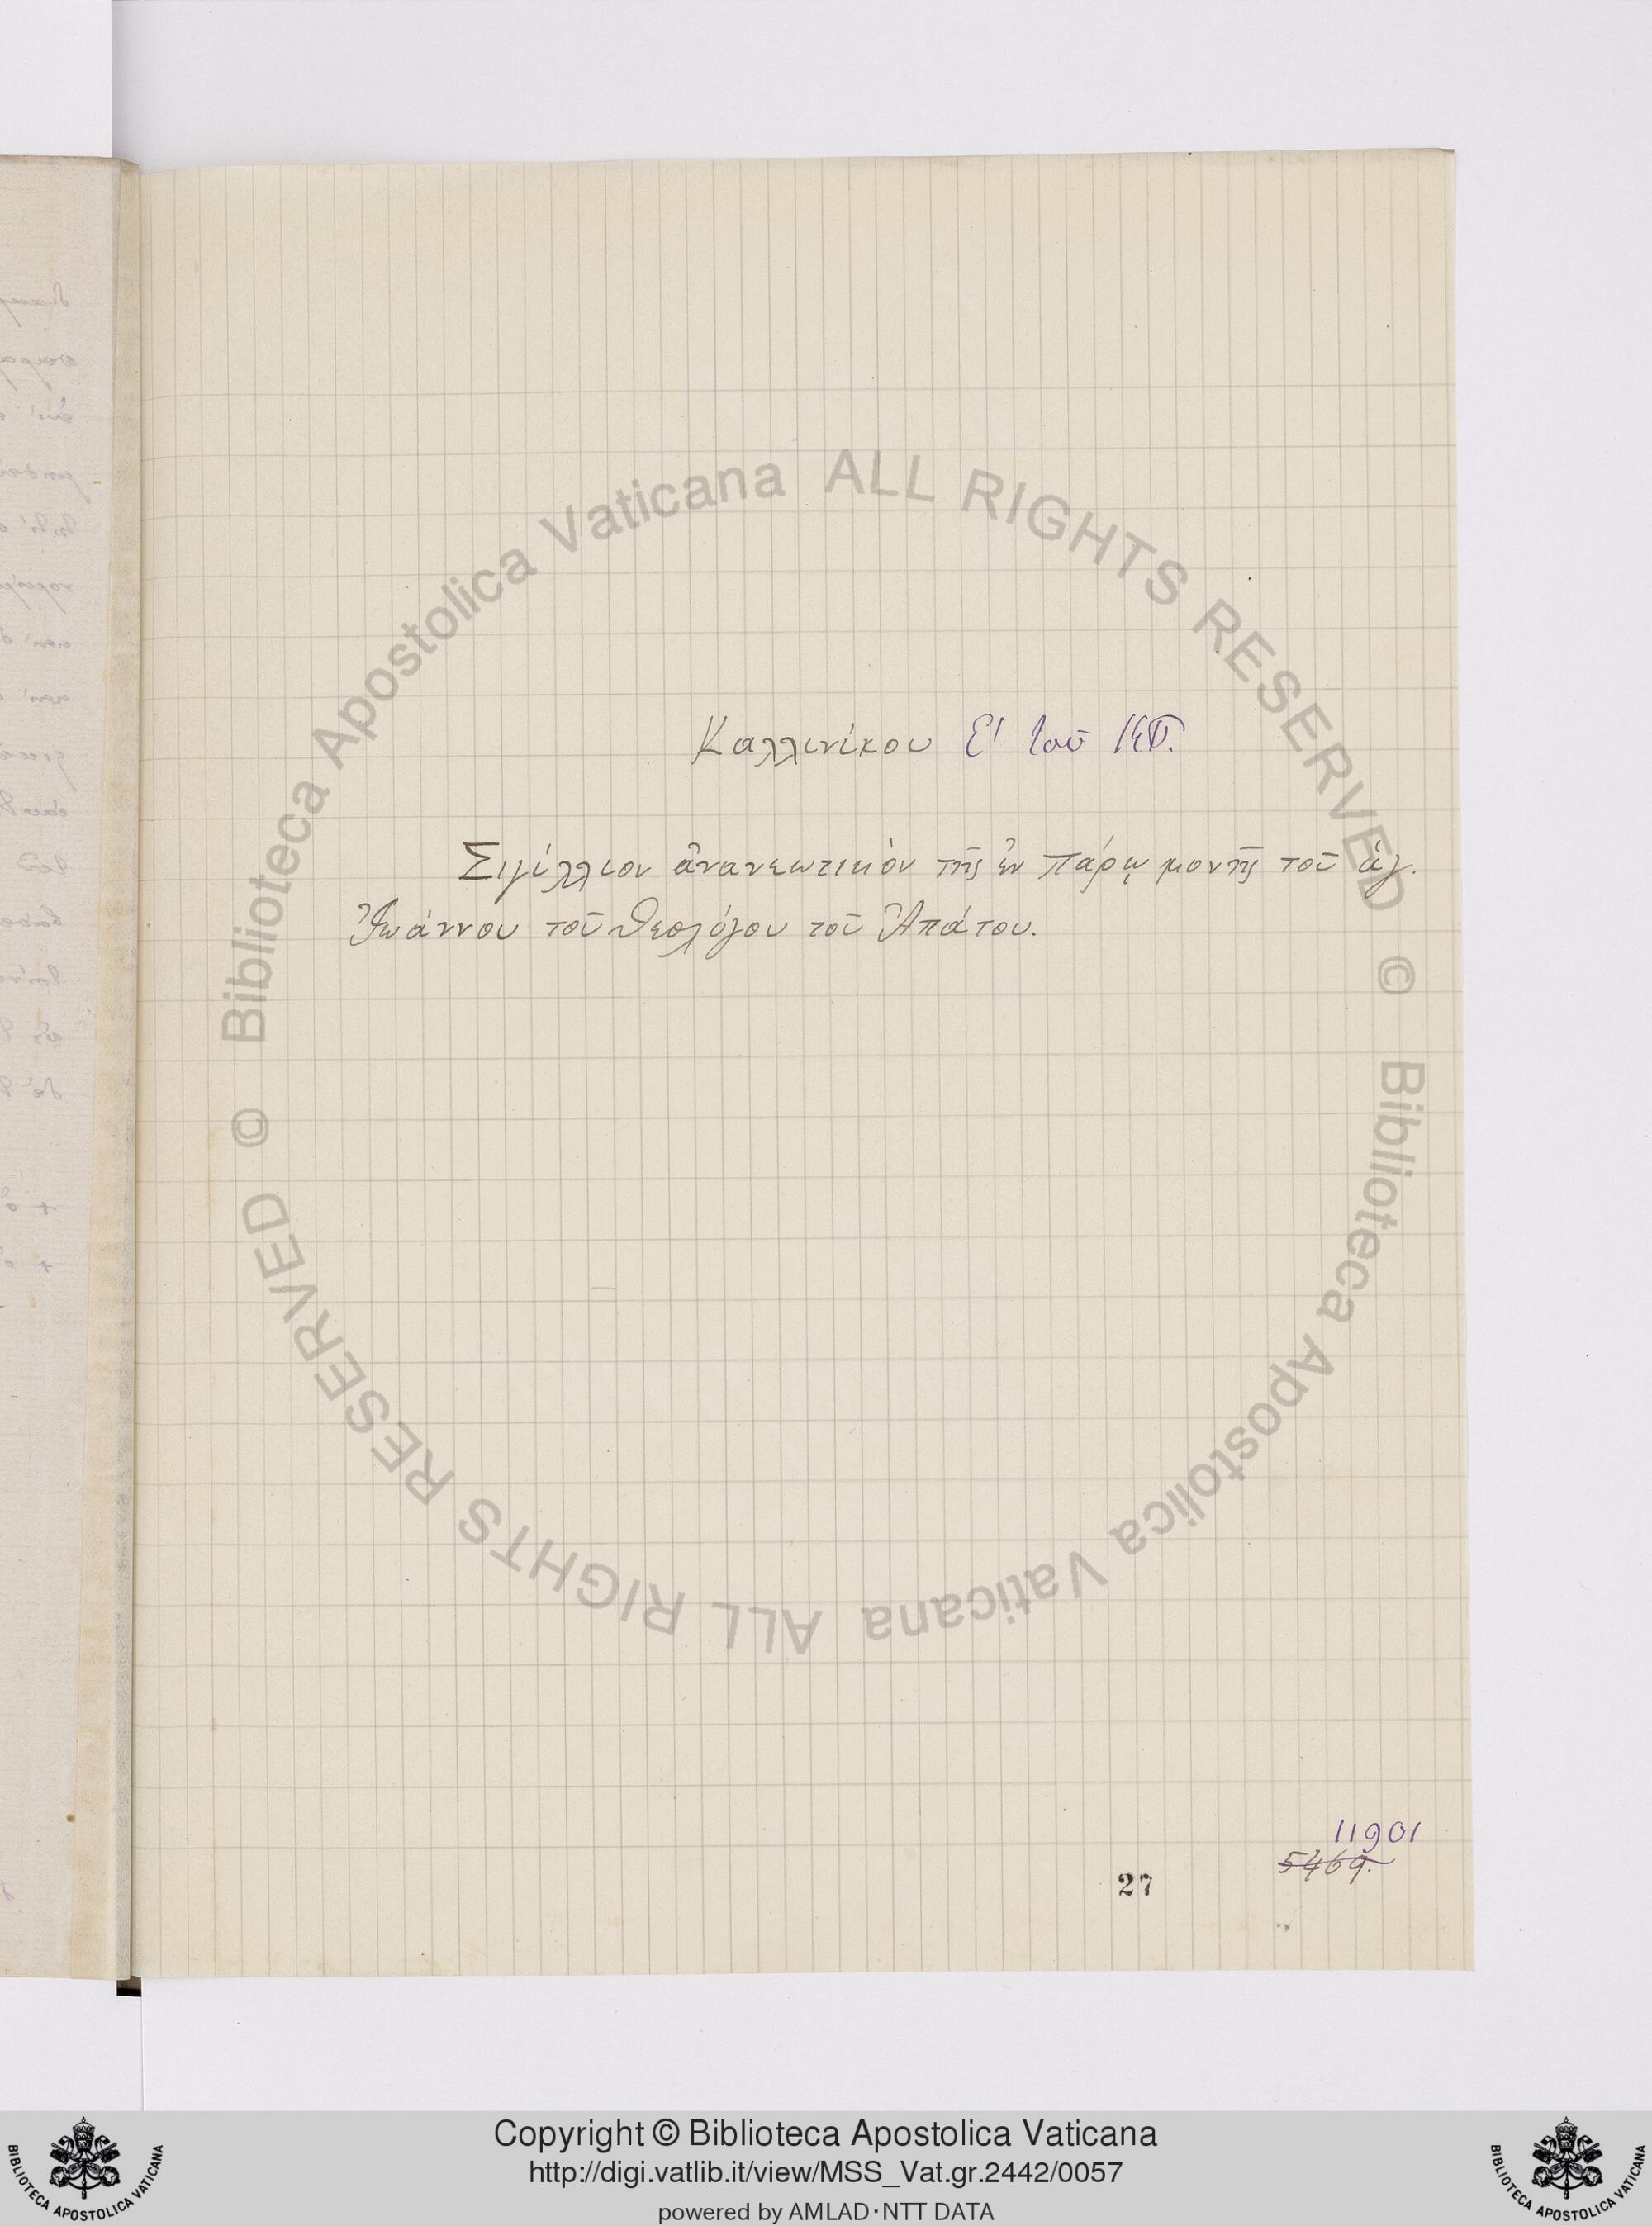 Καλλινίκου Ε' τοῦ ΚΠ.
Σιγίλλιον ἀνανεωτικὸν τῆς ἐν Πάρῳ μονῆς τοῦ ἁγ.
Ἰωάννου τοῦ Θεολόγου τοῦ Ἀπάτου.
11901
5469.
27
Biblioteca Apostolica Vaticana ALL RIGHTS RESERVED ©
Biblioteca Apostolica Vaticana ALL RIGHTS RESERVED ©
Copyright © Biblioteca Apostolica Vaticana
http://digi.vatlib.it/view/MSS_Vat.gr.2442/0057
powered by AMLAD·NTT DATA
BIBLIOTECA APOSTOLICA VATICANA
BIBLIOTECA APOSTOLICA VATICANA